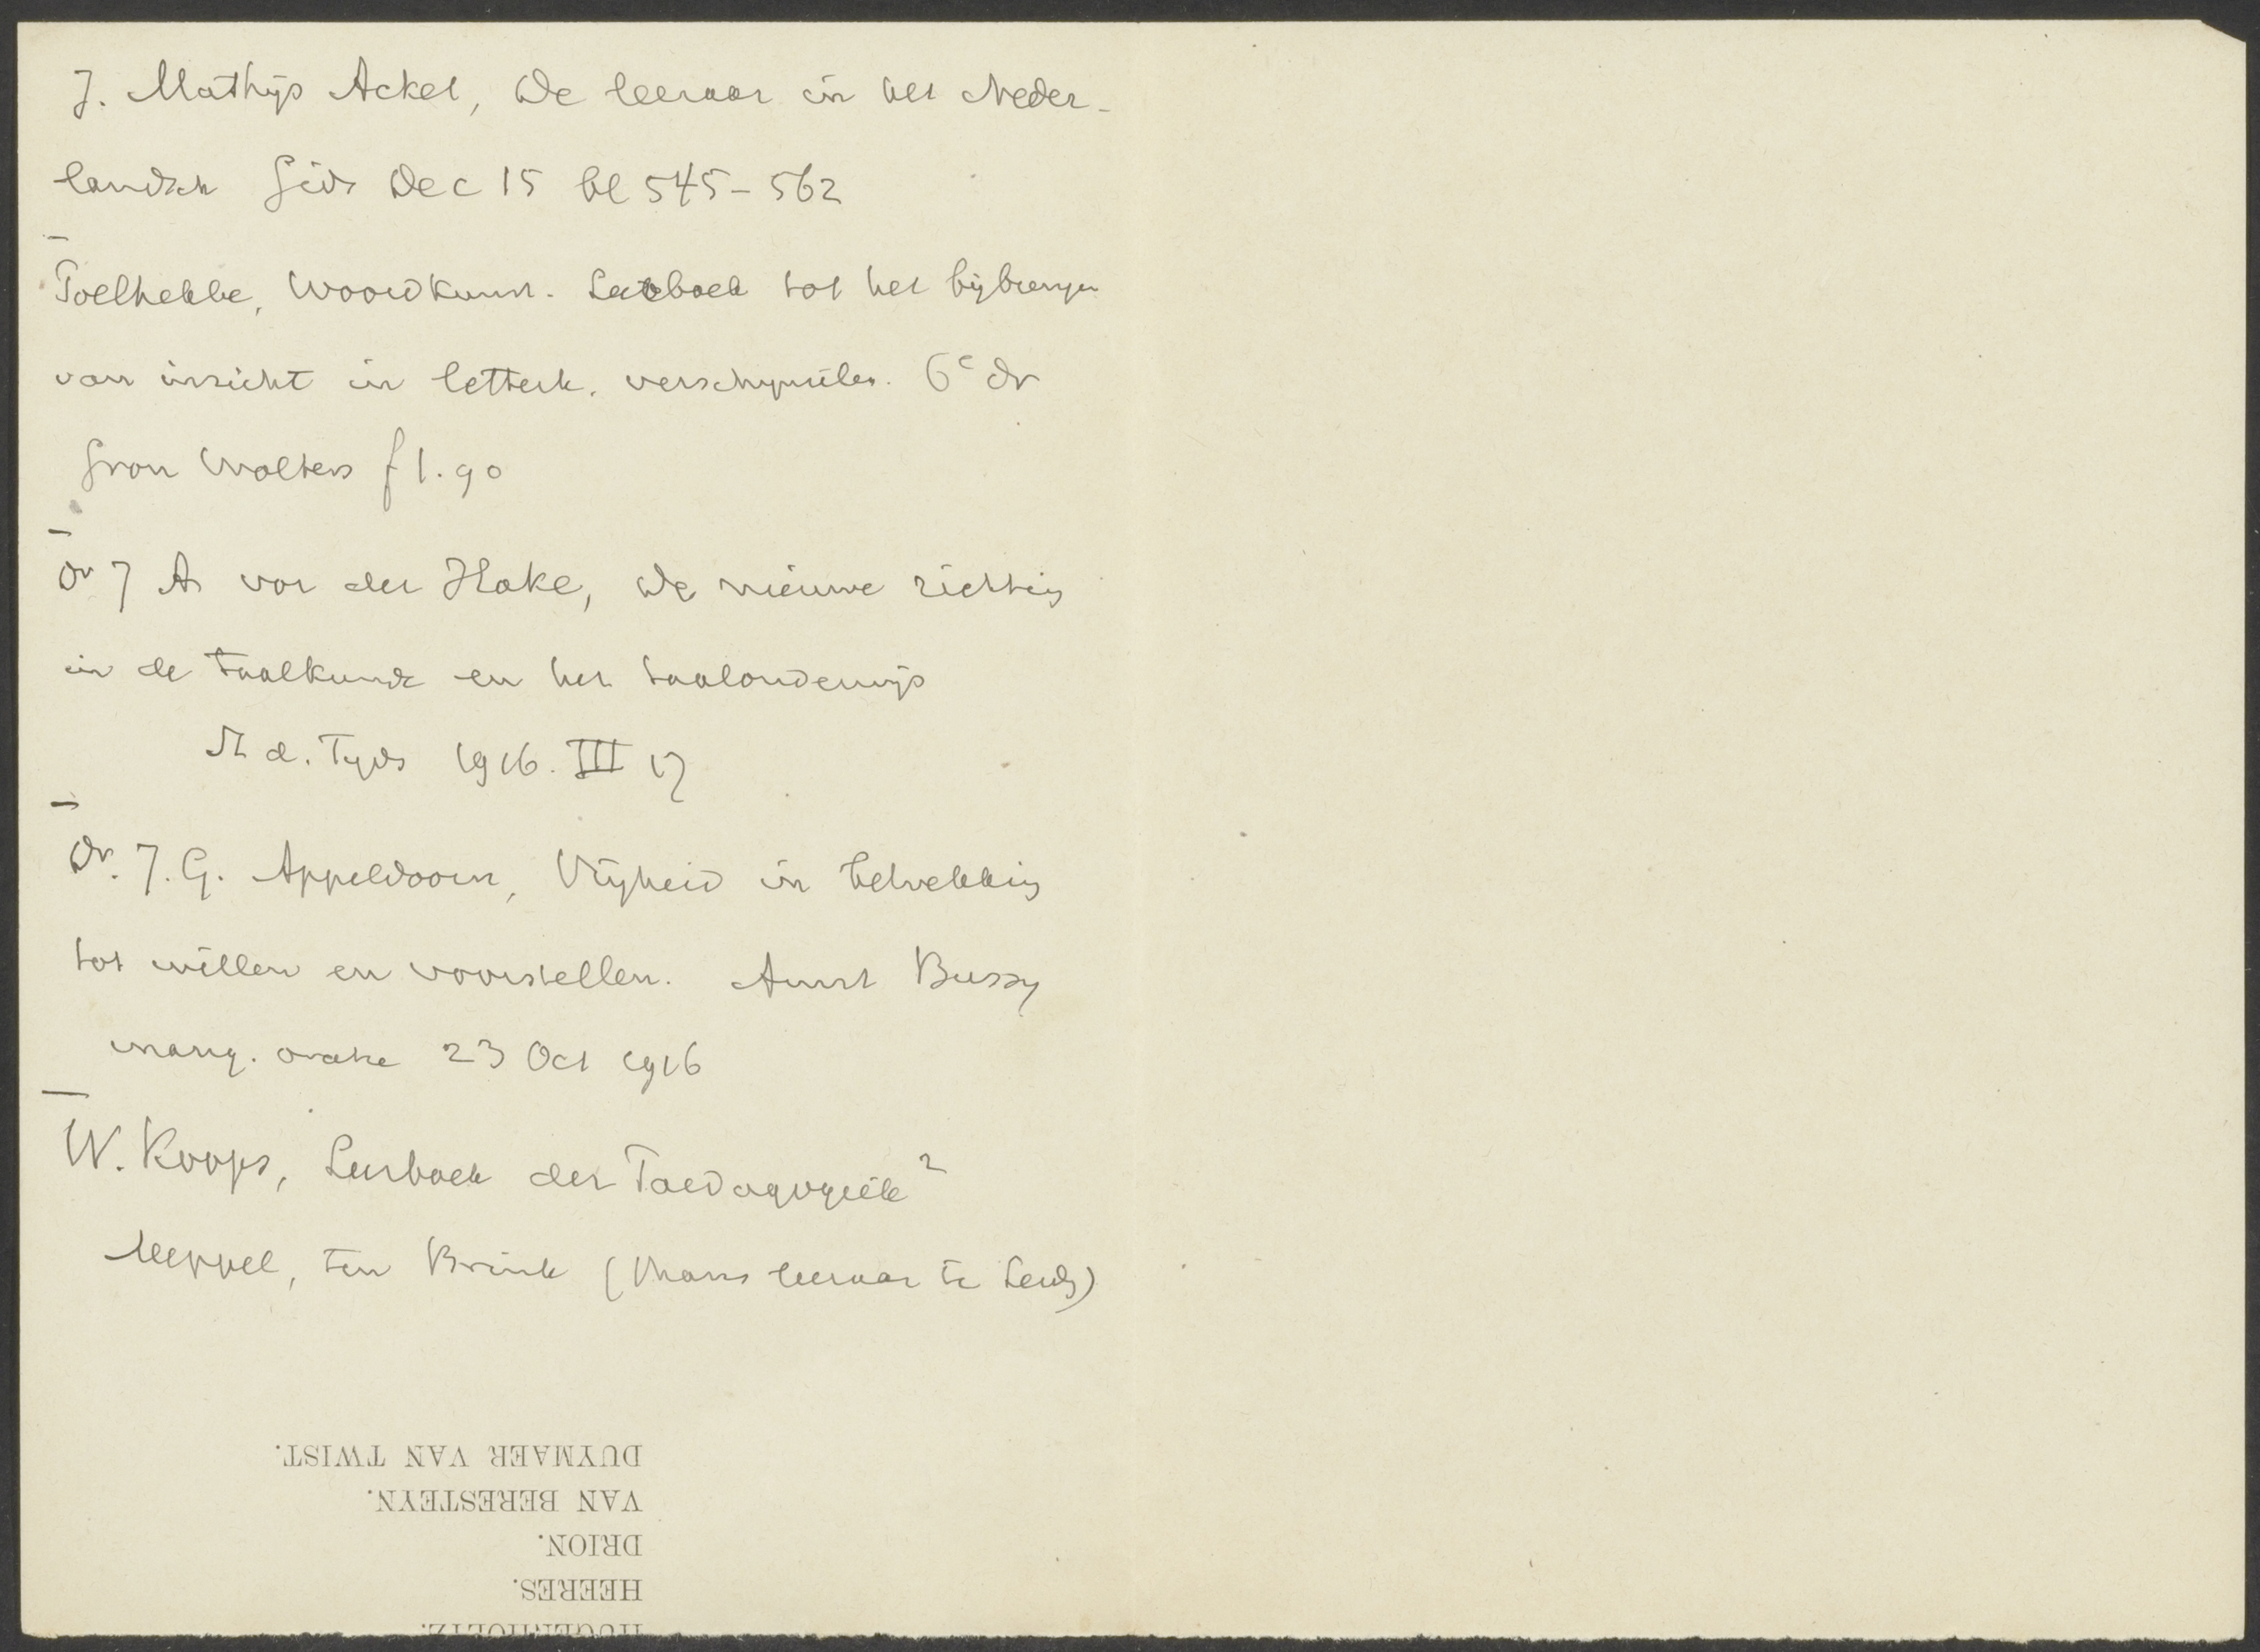 J. Mathijs Acket, De leeraar in het Neder-
landsch Gids Dec 15 bl 545-562
Poelhekke, Woordkunst. Leerboek tot het bijbrengen
van inzicht in letterk. verschijnselen. 6e dr
Gron Wolters f 1.90
Dr J A vor der Hake, De nieuwe richting
in de taalkunde en het taalonderwijs
St d. Tyds 1916. III 17
Dr. J. G. Appeldoorn, Vrijheid in betrekking
tot willen en voorstellen. Amst Bussy
inaug. oratie 23 Oct 1916
W. Koops, Leerboek der Paedagogiek 2
Meppel, ten Brink (Thans leeraar te)
HUGENHOLTZ.
HEERES.
DRION.
VAN BERESTEYN.
DUYMAER VAN TWIST.